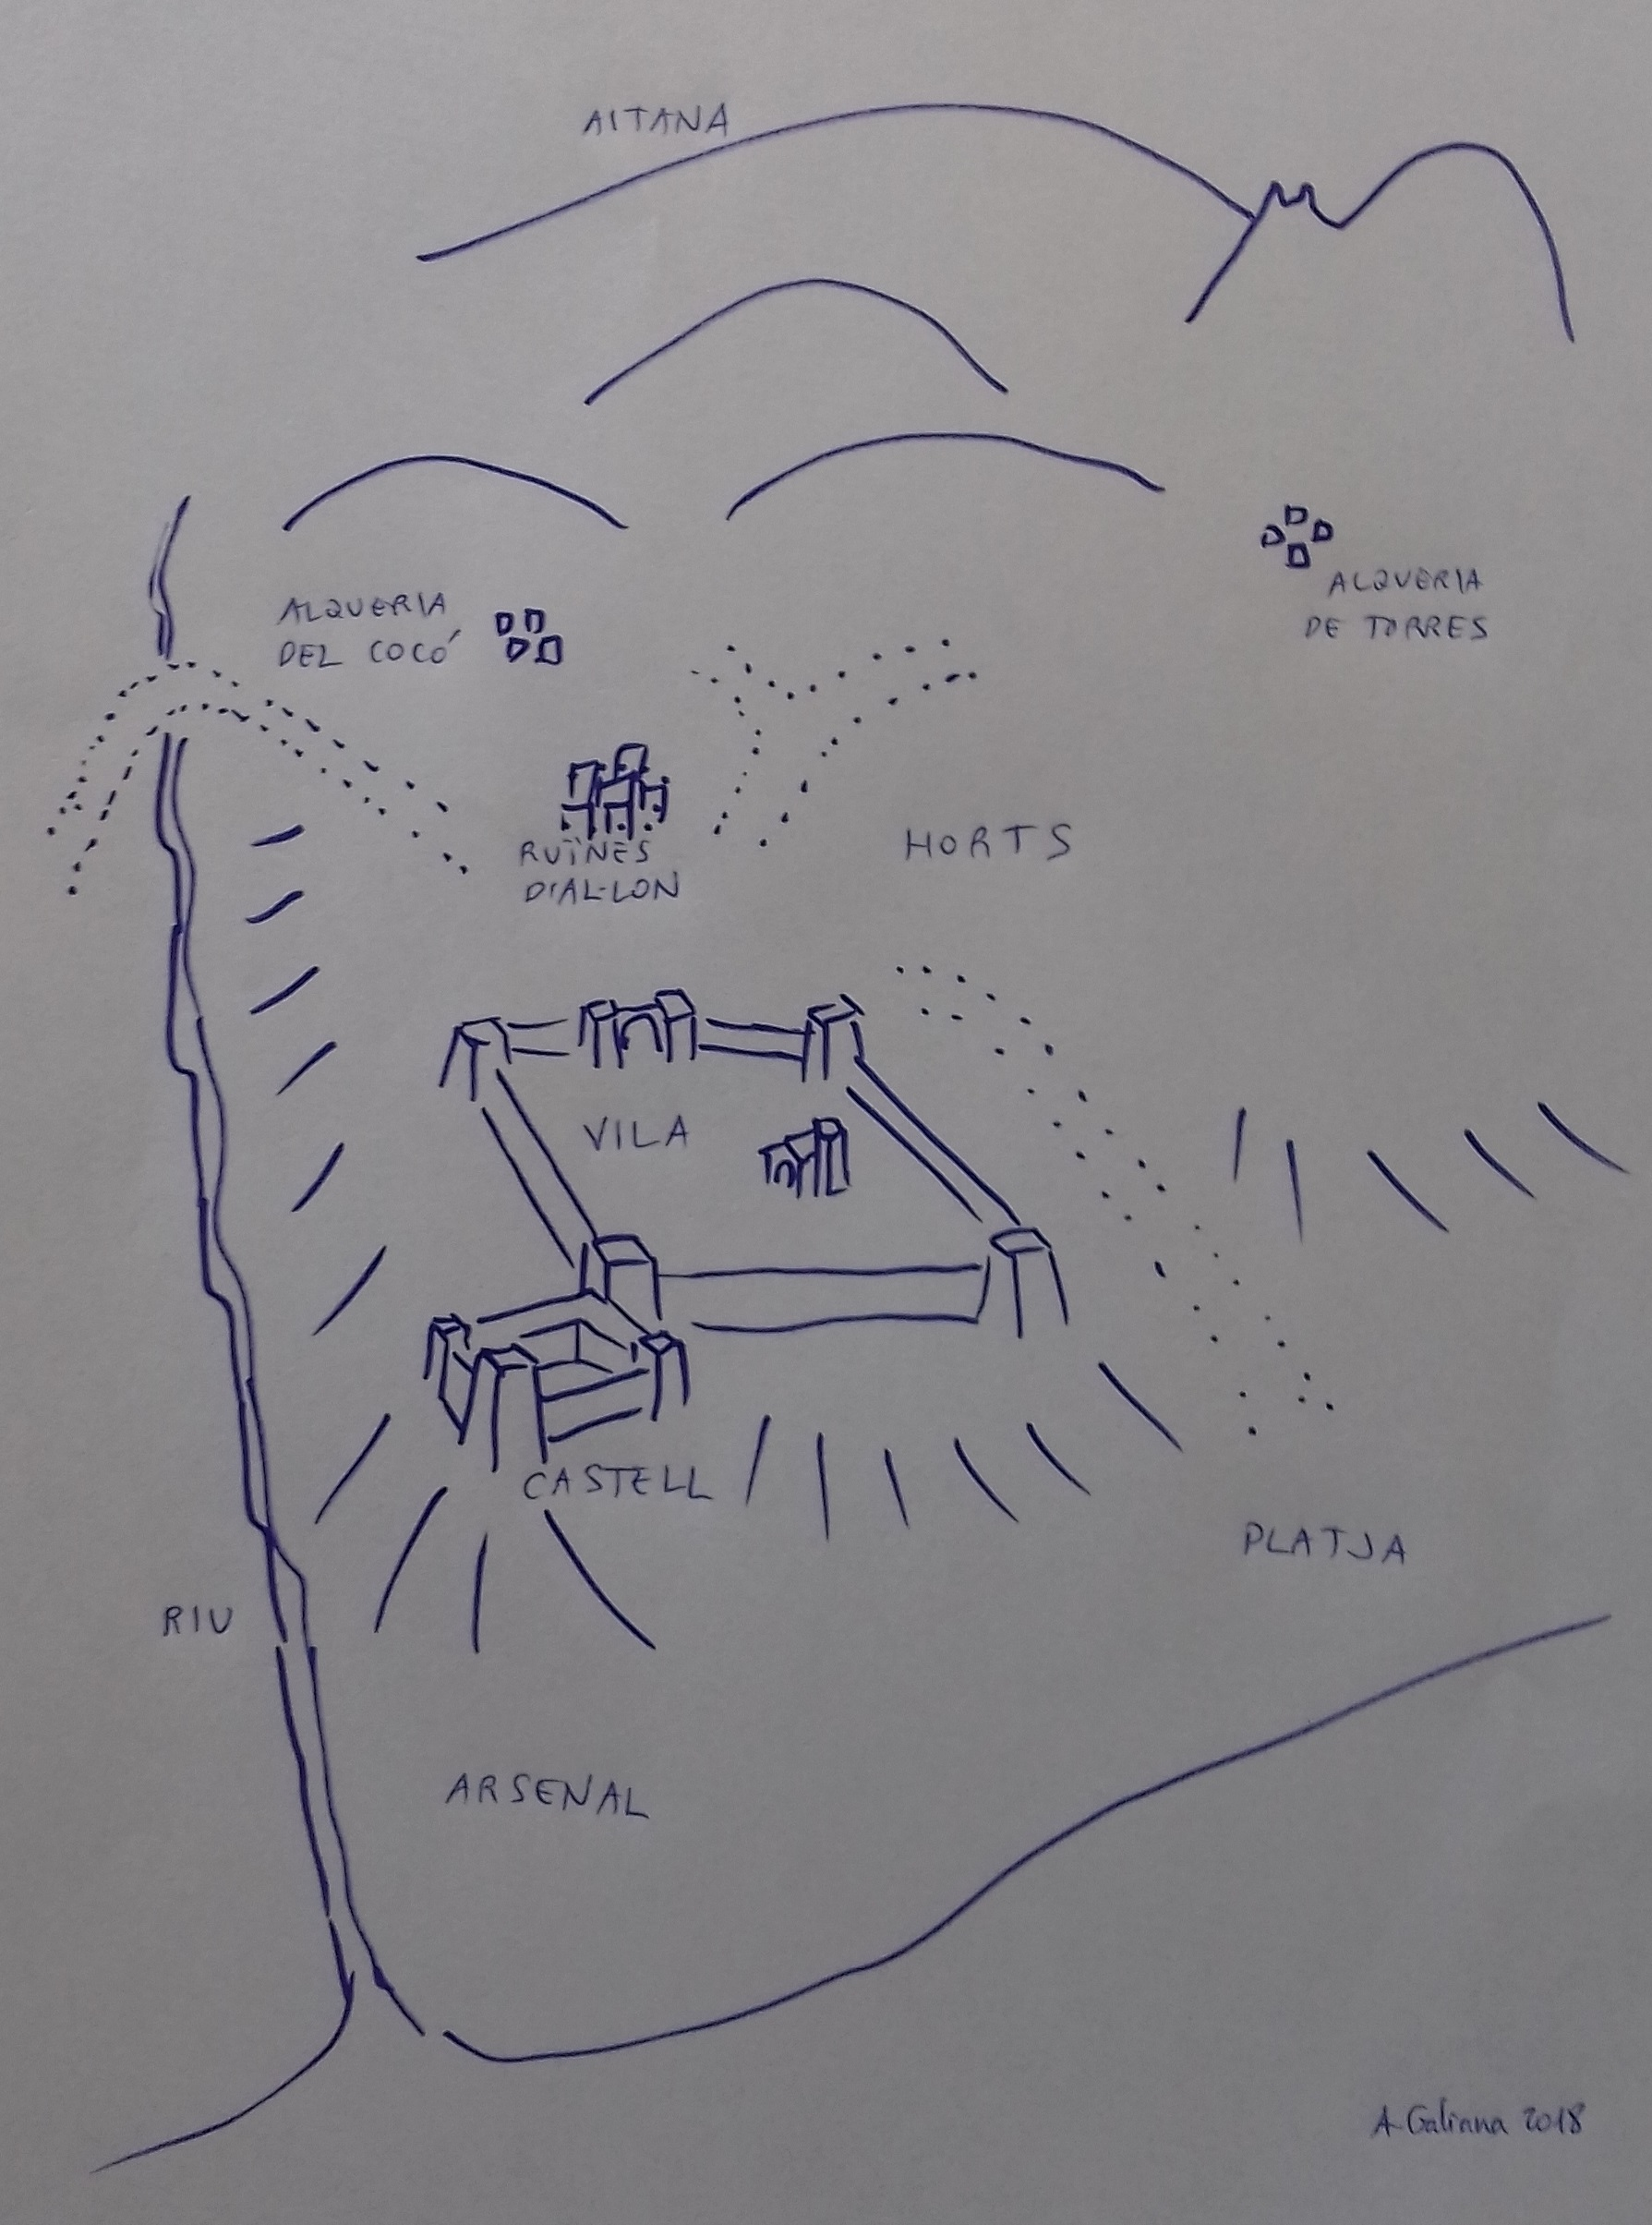 AITANA
ALQUERIA
DE TORRES
ALQUERIA
DEL COCÓ
RUÏNES
D'AL-LON
HORTS
VILA
CASTELL
PLATJA
RIU
ARSENAL
A. Galiana 2018